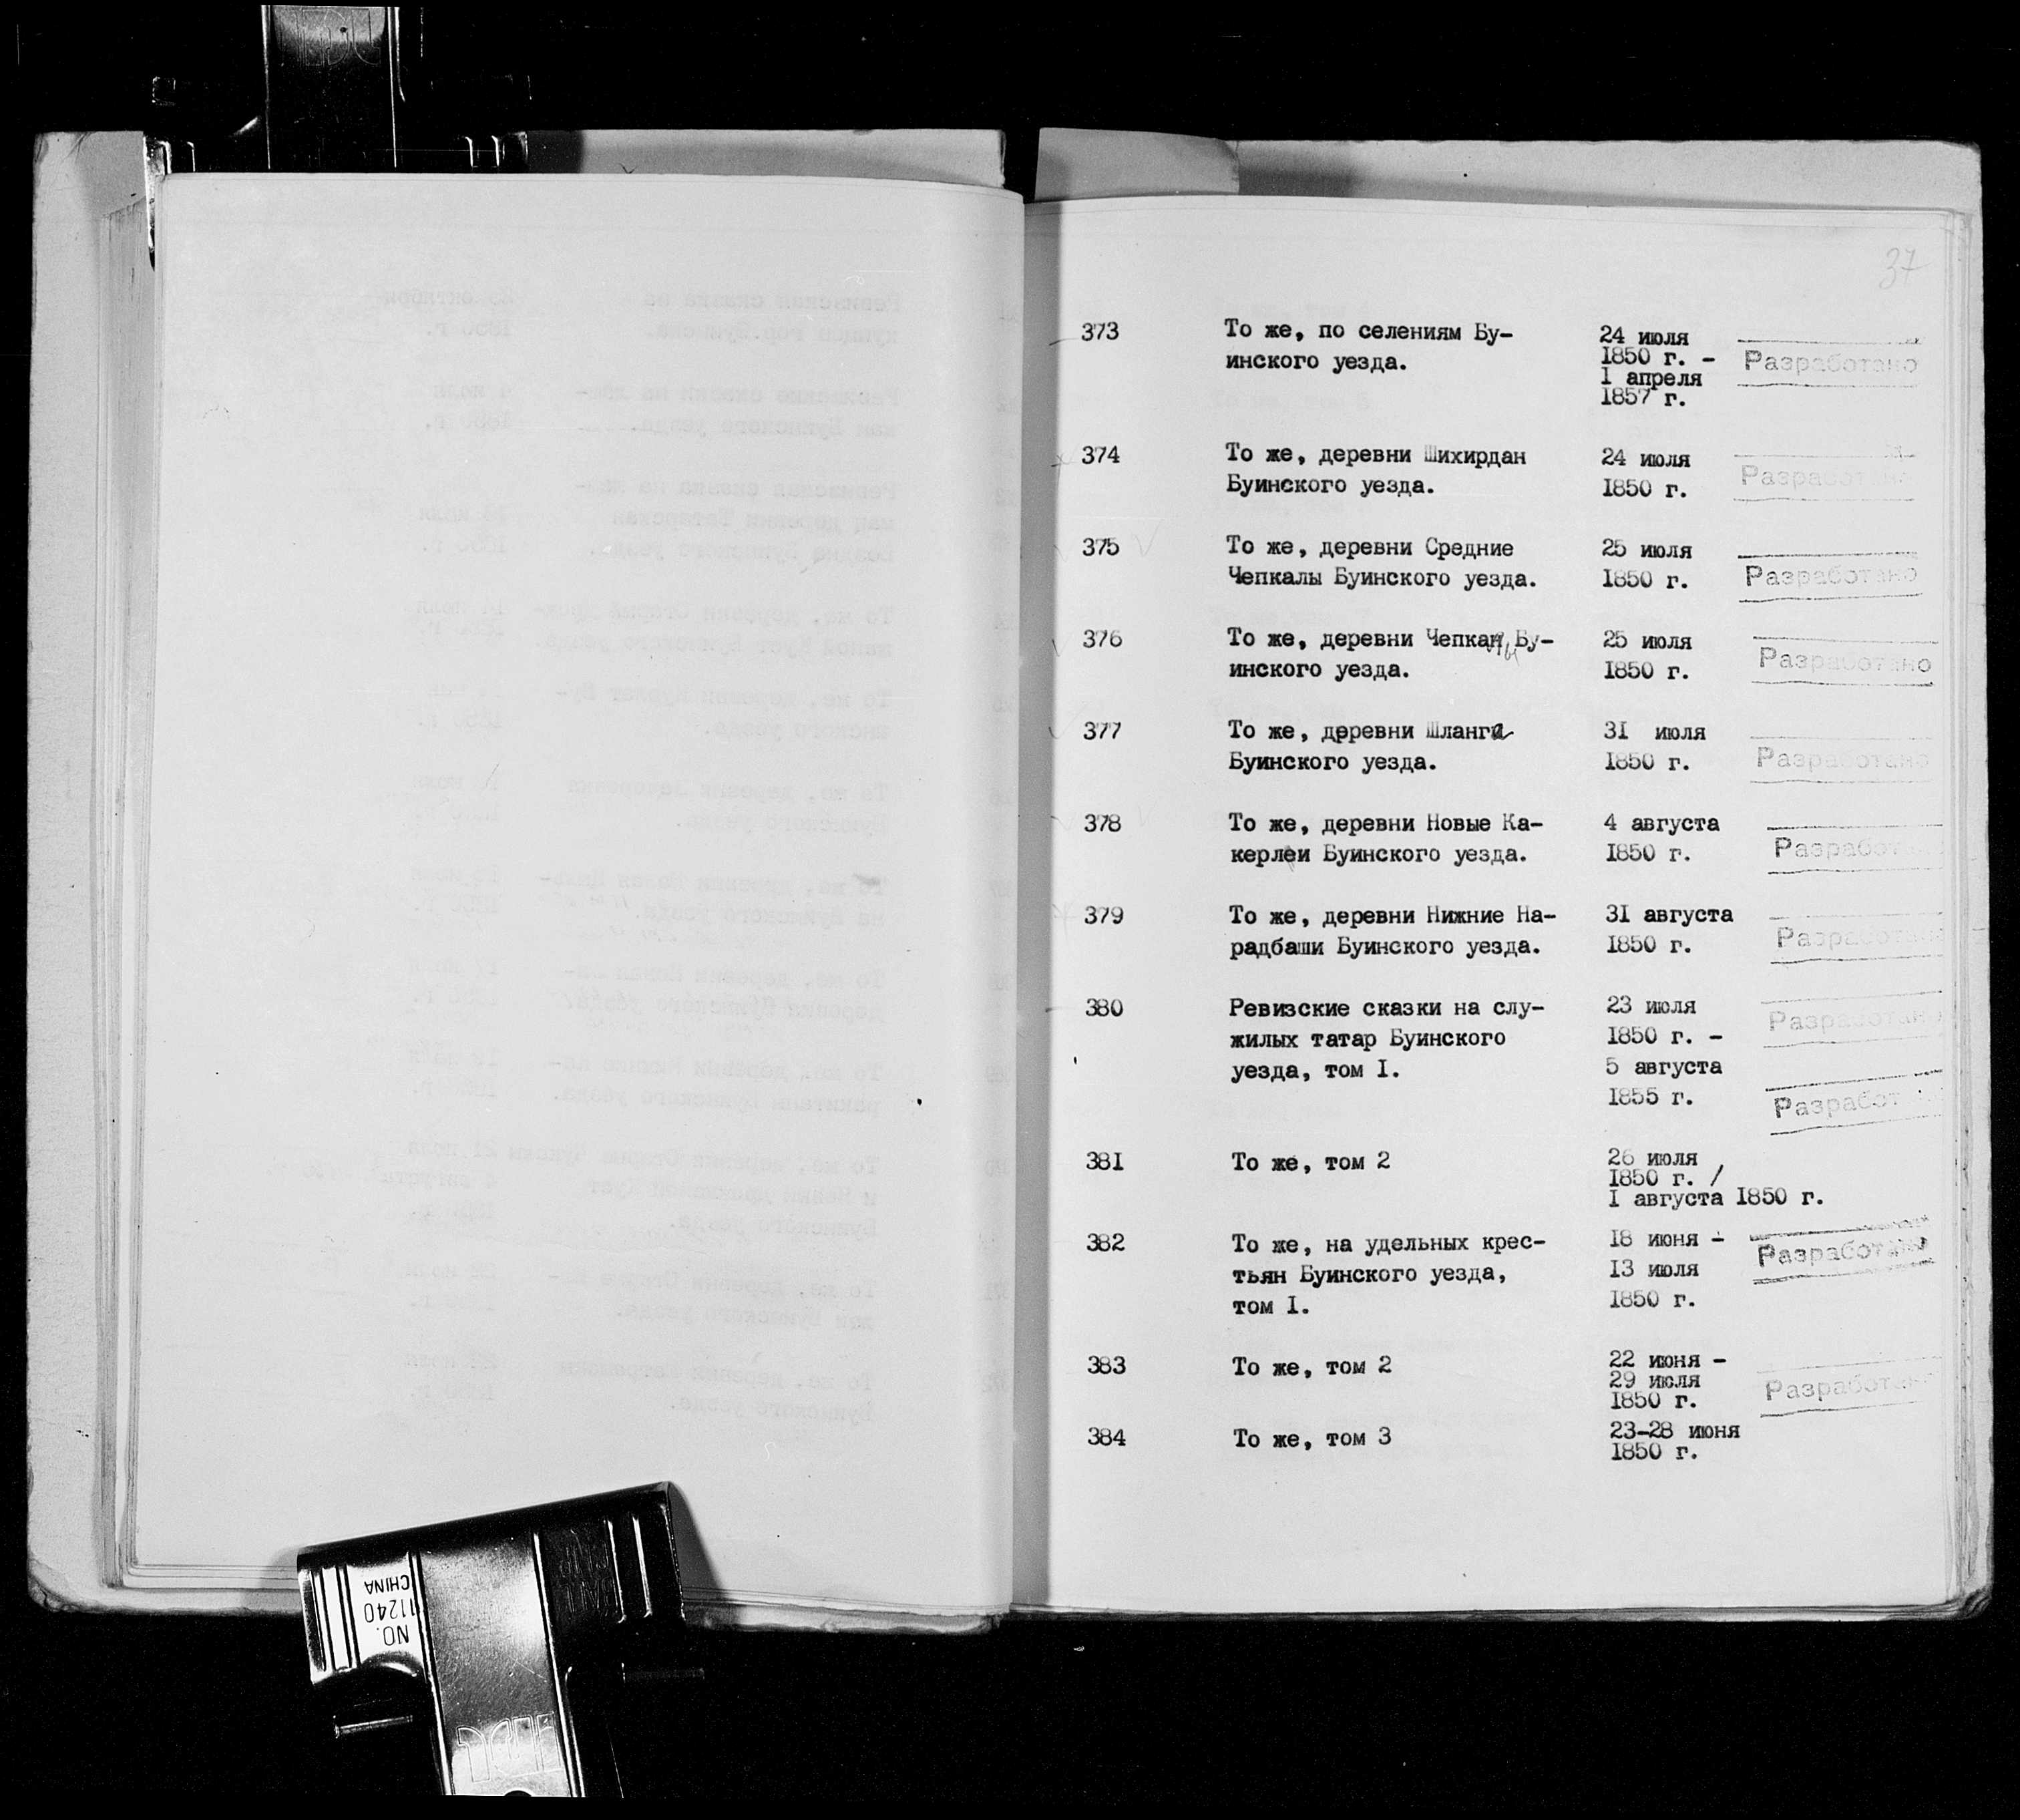 37
373 То же, по селениям Бу- 24 июля
инского уезда. 1850 г. - Разработано
1 апреля
1857 г.
374 То же, деревни Шихирдан 24 июля
Буинского уезда. 1850 г. Разработано
375 То же, деревни Средние 25 июля
Чепкалы Буинского уезда. 1850 г. Разработано
376 То же, деревни Чепкан Бу- 25 июля
инского уезда. 1850 г. Разработано
377 То же, деревни Шланга 31 июля
Буинского уезда. 1850 г. Разработано
378 То же, деревни Новые Ка- 4 августа
керлеи Буинского уезда. 1850 г. Разработано
379 То же, деревни Нижние На- 31 августа
радбаши Буинского уезда. 1850 г. Разработано
380 Ревизские сказки на слу- 23 июля
жилых татар Буинского 1850 г. - Разработано
уезда, том I. 5 августа
1855 г. Разработано
381 То же, том 2 26 июля
1850 г. /
1 августа 1850 г.
382 То же, на удельных крес- 18 июня - Разработано
тьян Буинского уезда, 13 июля
том I. 1850 г.
383 То же, том 2 22 июня -
29 июля
1850 г. Разработано
384 То же, том 3 23-28 июня
1850 г.
NO.
11240
CHINA